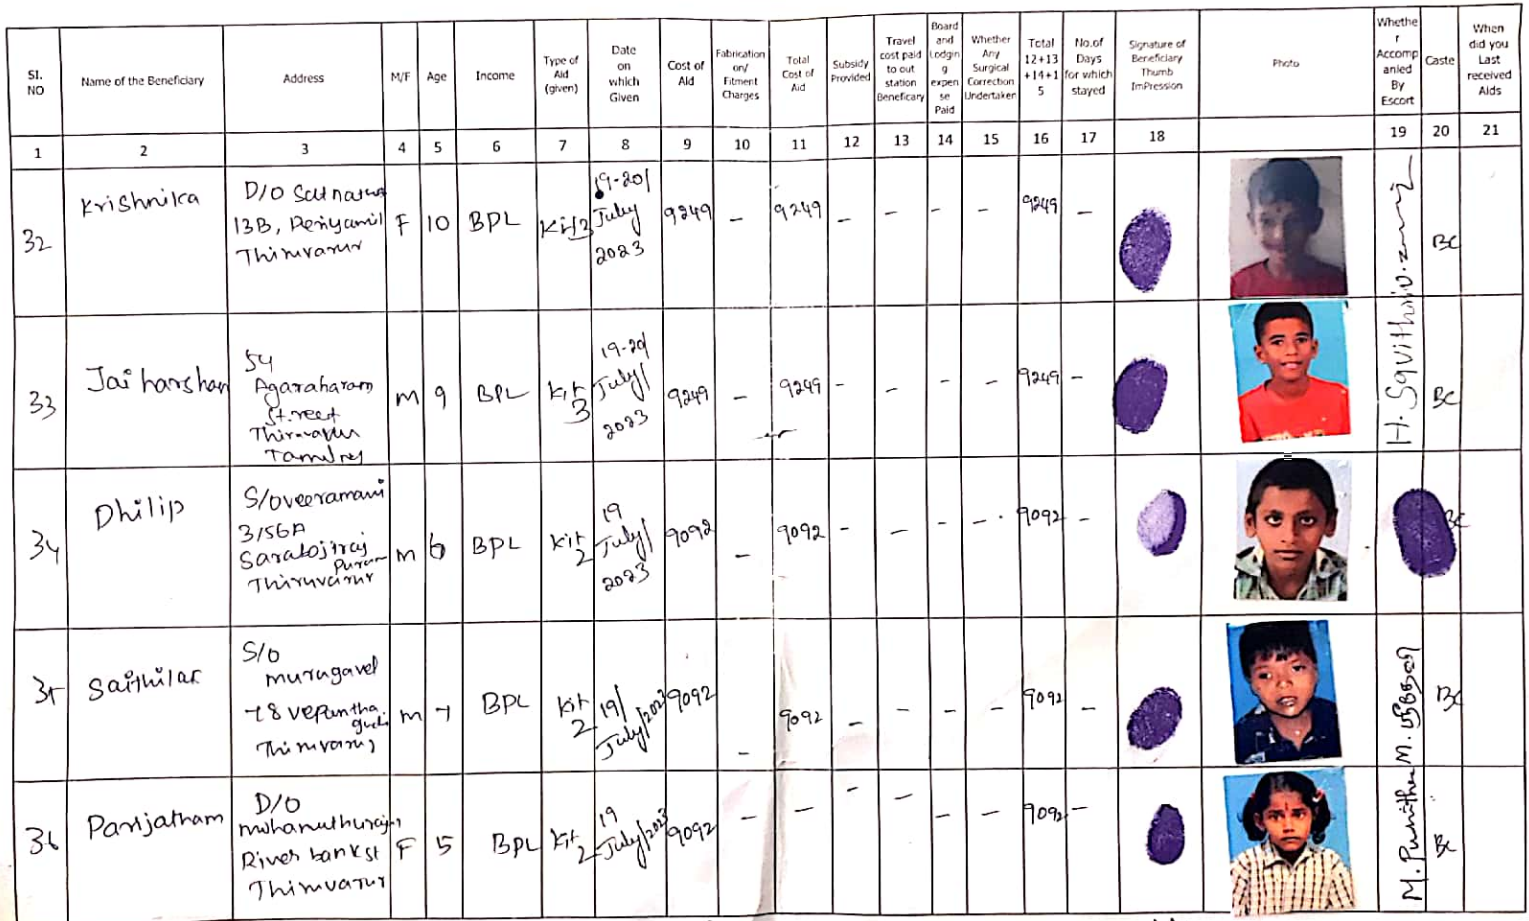 Sl. NO | Name of the Beneficiary | Address | M/F | Age | Income | Type of Aid (given) | Date on which Given | Cost of Aid | Fabrication on/ Fitment Charges | Total Cost of Aid | Subsidy Provided | Travel cost paid to out station Beneficary | Board and Lodgin g expen se Paid | Whether Any Surgical Correction Undertaken | Total 12+13 +14+1 5 | No.of Days for which stayed | Signature of Beneficiary Thumb ImPression | Photo | Whethe r Accomp anied By Escort | Caste | When did you Last received Aids
1 | 2 | 3 | 4 | 5 | 6 | 7 | 8 | 9 | 10 | 11 | 12 | 13 | 14 | 15 | 16 | 17 | 18 | 19 | 20 | 21
32 | Krishnika | D/O
13B,
Thiruvarur | F | 10 | BPL | Kit 3 | 19-20/ July 2023 | 9249 | - | 9249 | - | - | - | - | 9249 | - | BC
33 | Jai harshan | 54
Agaraharam
Street
Thiruvarur
| m | 9 | BPL | Kit 3 | 19-20/ July/ 2023 | 9249 | - | 9249 | - | - | - | - | 9249 | - | H. Savithri | BC
34 | Dhilip | S/o veeramani
3/56A
Puram
Thiruvarur | m | 6 | BPL | Kit 2 | 19 July/ 2023 | 9092 | - | 9092 | - | - | - | - | 9092 | - | BC
35 | S/o
murugavel
Thiruvarur | m | 7 | BPL | Kit 2 | 19/ July/2023 | 9092 | - | 9092 | - | - | - | - | 9092 | - | BC
36 | Parijatham | D/O
River bank st
Thiruvarur | F | 5 | BPL | Kit 2 | 19 July/2023 | 9092 | - | - | - | - | - | - | 9092 | - | M. Punitha | BC